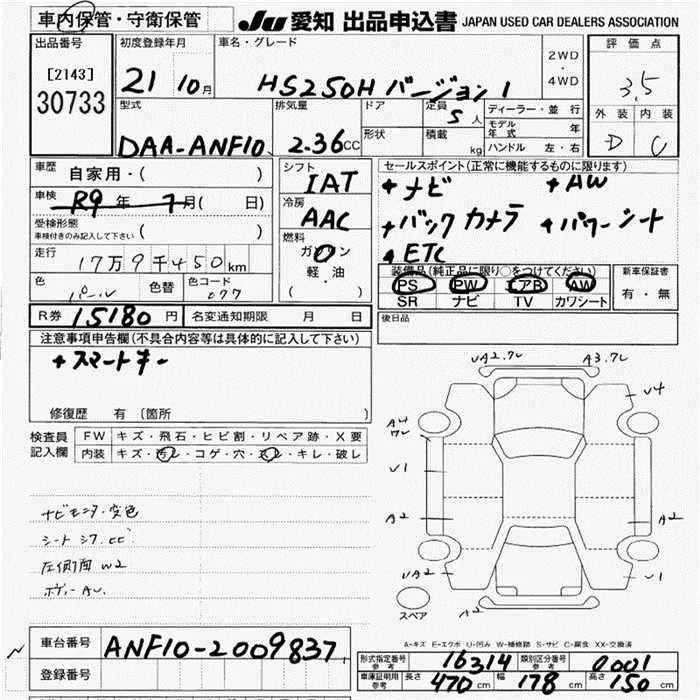 車内保管・守衛保管 JU 愛知 出品申込書 JAPAN USED CAR DEALERS ASSOCIATION
出品番号 初度登録年月 車名・グレード 評価点
[2143] 21 10月 HS250H バージョン I 2WD ・ 4WD 3.5
30733 型式 排気量 ドア 定員 5人 ディーラー・並行 外装 内装
DAA-ANF10 2.36cc 形状 積載 kg モデル年式 年 D C
ハンドル 左・右
車歴 自家用・( ) シフト IAT セールスポイント(正常に機能するものに限ります)
車検 R9年 7月( 日) 冷房 AAC +ナビ +AW
受検形態 車検付きのみ記入して下さい ( ) +バックカメラ +パワーシート
走行 17万9千450km 燃料 ガソリン 軽・油 ( ) +ETC
装備品(純正品に限り○をつけてください) 新車保証書
色 パール 色替 色コード 077 PS PW エアB AW 有・無
SR ナビ TV カワシート
R券 15180円 名変通知期限 月 日 後日品
注意事項申告欄(不具合内容等は具体的に記入して下さい)
+スマートキー
修復歴 有 (箇所 )
検査員記入欄 FW キズ・飛石・ヒビ割・リペア跡・X要
内装 キズ・汚レ・コゲ・穴・スレ・キレ・破レ
UA2.7L A3.7L
V4
V1
A2 A2
UA2 V1
A2
ナビモニタ変色
シート シワ
左側面 W2
ボディー AU
スペア
A-キズ E-エクボ U-凹み W-補修跡 S-サビ C-腐食 XX-交換済
車台番号 ANF10-2009837
登録番号
形式指定番号 参考 16314 類別区分番号 参考 0001
車庫証明用 参考 長さ 470cm 幅 178cm 高さ 150cm